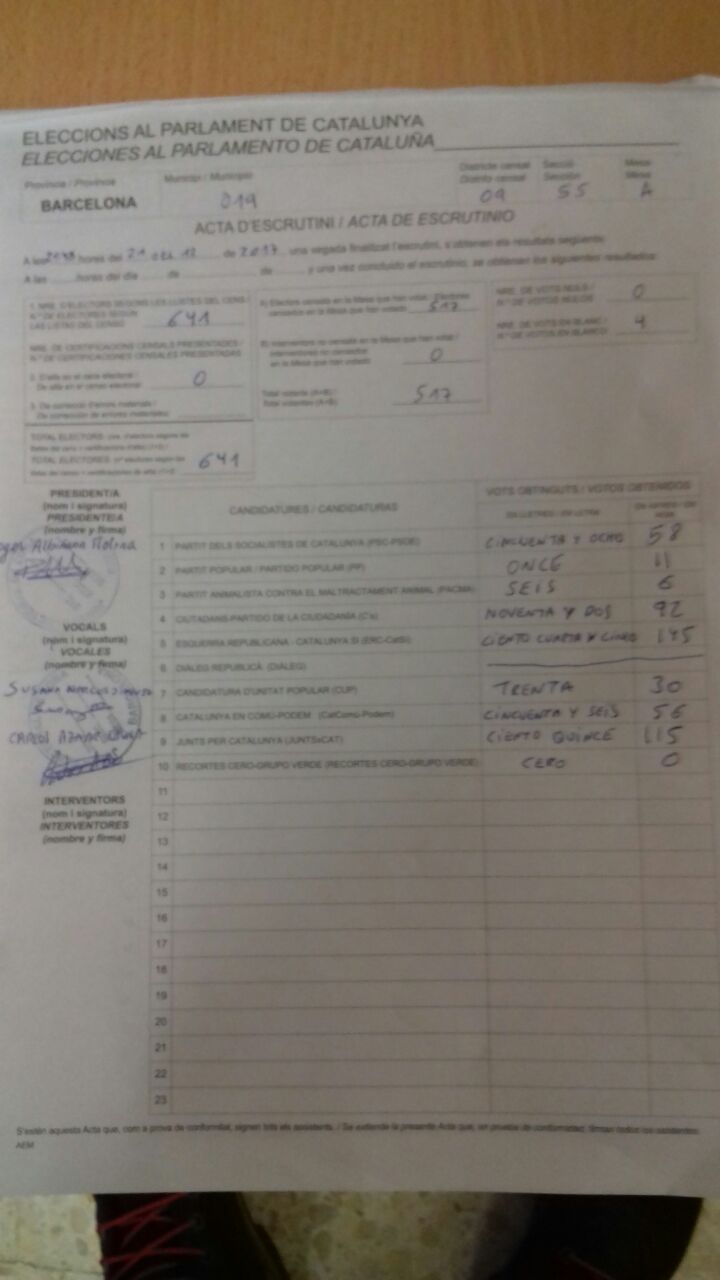 ELECCIONS AL PARLAMENT DE CATALUNYA
ELECCIONES AL PARLAMENTO DE CATALUÑA
Província / Provincia
Municipi / Municipio
Districte censal
Distrito censal
Secció
Sección
Mesa
Mesa
BARCELONA
019
09
55
A
ACTA D'ESCRUTINI / ACTA DE ESCRUTINIO
A les hores del 21 del 12 de 2017 una vegada finalitzat l'escrutini, s'obtenen els resultats següents:
A las horas del día de de y una vez concluido el escrutinio, se obtienen los siguientes resultados:
1. NRE. D'ELECTORS SEGONS LES LLISTES DEL CENS /
N.º DE ELECTORES SEGÚN
LAS LISTAS DEL CENSO 641
NRE. DE CERTIFICACIONS CENSALS PRESENTADES /
N.º DE CERTIFICACIONES CENSALES PRESENTADAS
2. D'alta en el cens electoral /
De alta en el censo electoral 0
3. De correcció d'errors materials /
De corrección de errores materiales
TOTAL ELECTORS
TOTAL ELECTORES 641
A) Electors censats en la Mesa que han votat / Electores
censados en la Mesa que han votado 517
B) Interventors no censats en la Mesa que han votat /
Interventores no censados
en la Mesa que han votado 0
Total votants (A+B) /
Total votantes (A+B) 517
NRE. DE VOTS NULS /
N.º DE VOTOS NULOS 0
NRE. DE VOTS EN BLANC /
N.º DE VOTOS EN BLANCO 4
PRESIDENT/A
(nom i signatura)
PRESIDENTE/A
(nombre y firma)
Albiñana Molina
VOCALS
(nom i signatura)
VOCALES
(nombre y firma)
SUSANA
CARLOS
INTERVENTORS
(nom i signatura)
INTERVENTORES
(nombre y firma)
CANDIDATURES / CANDIDATURAS
VOTS OBTINGUTS / VOTOS OBTENIDOS
EN LLETRES / EN LETRA
1 PARTIT DELS SOCIALISTES DE CATALUNYA (PSC-PSOE) CINCUENTA Y OCHO 58
2 PARTIT POPULAR / PARTIDO POPULAR (PP) ONCE 11
3 PARTIT ANIMALISTA CONTRA EL MALTRACTAMENT ANIMAL (PACMA) SEIS 6
4 CIUTADANS-PARTIDO DE LA CIUDADANÍA (C's) NOVENTA Y DOS 92
5 ESQUERRA REPUBLICANA - CATALUNYA SÍ (ERC-CatSí) CIENTO CUARTA Y CINCO 145
6 DIÀLEG REPUBLICÀ (DIÀLEG)
7 CANDIDATURA D'UNITAT POPULAR (CUP) TRENTA 30
8 CATALUNYA EN COMÚ-PODEM (CatComú-Podem) CINCUENTA Y SEIS 56
9 JUNTS PER CATALUNYA (JUNTSxCAT) CIENTO QUINCE 115
10 RECORTES CERO-GRUPO VERDE (RECORTES CERO-GRUPO VERDE) CERO 0
11
12
13
14
15
16
17
18
19
20
21
22
23
S'estén aquesta Acta que, com a prova de conformitat, signen tots els assistents. / Se extiende la presente Acta que, en prueba de conformidad, firman todos los asistentes.
AEM